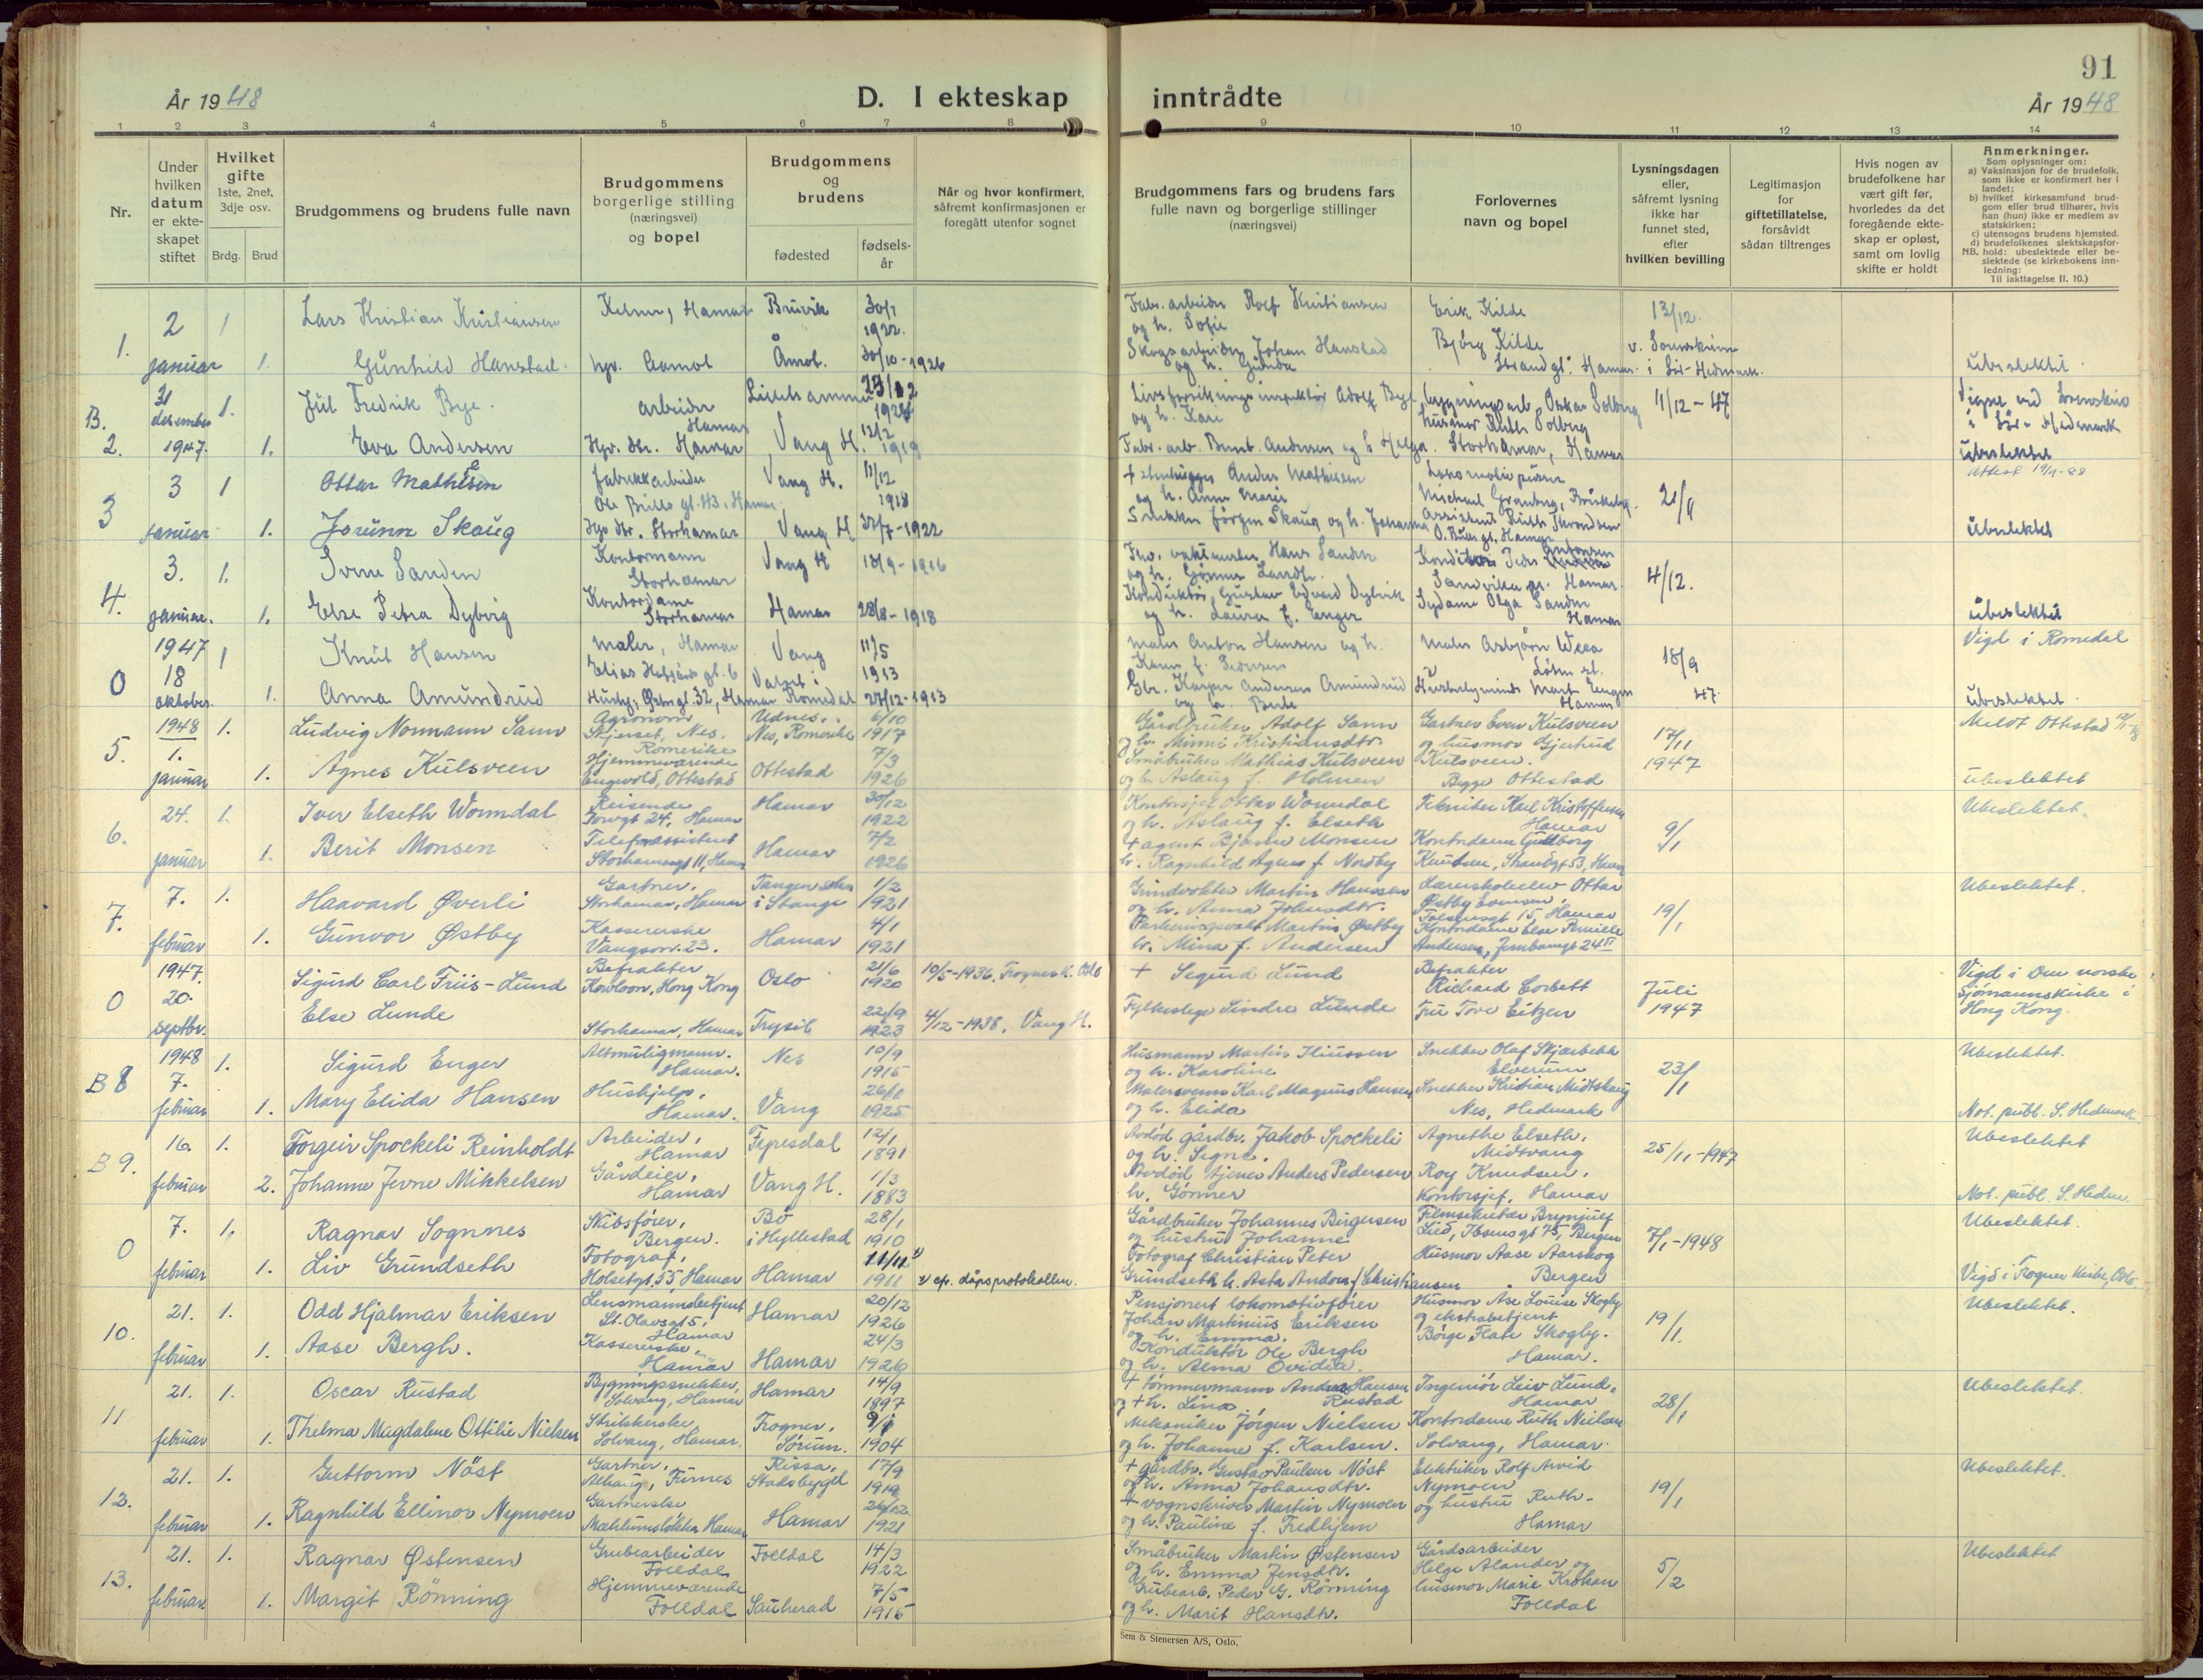 91
År 1948
D. I ekteskap inntrådte
År 1948
1 2 3 4 5 6 7 8 9 10 11 12 13 14
Nr.
Under hvilken datum er ekteskapet stiftet
Hvilket gifte 1ste, 2net, 3dje osv.
Brdg. Brud
Brudgommens og brudens fulle navn
Brudgommens borgerlige stilling (næringsvei) og bopel
Brudgommens og brudens
fødested
fødselsår
Når og hvor konfirmert, såfremt konfirmasjonen er foregått utenfor sognet
Brudgommens fars og brudens fars fulle navn og borgerlige stillinger (næringsvei)
Forlovernes navn og bopel
Lysningsdagen eller, såfremt lysning ikke har funnet sted, efter hvilken bevilling
Legitimasjon for giftetillatelse, forsåvidt sådan tiltrenges
Hvis nogen av brudefolkene har vært gift før, hvorledes da det foregående ekteskap er opløst, samt om lovlig skifte er holdt
Anmerkninger.
Som oplysninger om:
a) Vaksinasjon for de brudefolk, som ikke er konfirmert her i landet;
b) hvilket kirkesamfund brudgom eller brud tilhører, hvis han (hun) ikke er medlem av statskirken;
c) utensogns brudens hjemsted.
d) brudefolkenes slektskapsforhold: ubeslektede eller beslektede (se kirkebokens innledning:
NB. Til iakttagelse II. 10.)
1. 2 januar 1 Lars Kristian Kristiansen Kelner, Hamar Bruvik 30/1 1922. Fabr. arbeider Rolf Kristiansen og h. Sofie Erik Kilde 13/12.
1. Gunhild Hanstad. hjv. Aamot Åmot. 30/10-1926 Skogsarbeider Johan Hanstad og h. Gunda Bjørg Kilde Strandgt. Hamar. v. Sorenskriven i Sør-Hedmark. ubeslektet.
B. 2. 31 desember 1947. 1. Jul Fredrik Bye. arbeider Hamar Lillehammer Livsforsikringsinspektør Adolf Bye og h. Kare bygningsarb. Oskar Solberg husmor Ruth Solberg 11/12-47 Vigsel ved Sorenskriv i Sør-Hedmark
1. Eva Andersen Hjv. dtr. Hamar Vang H. 12/2 1919 Fabr. arb. Bernt Andersen og h Helga. Storhamar, Hamar ubeslektet
3 3 januar 1 Ottar Mathisen fabrikkarbeider Ole Bulls gt. 43, Hamar Vang H. 11/12 1918 + stenhugger Anders Mathisen og h. Anne Marie Lokomotivpusser Michael Granberg, Briskeby. 21/11 Attest 19/4-88
1. Jorunn Skaug Hjv dtr. Storhamar Vang H 1922 Snekker Jørgen Skaug og h. Johanna Assistent Ruth Throndsen O. Bulls gt. Hamar ubeslektet
4. 3. januar. 1. Sverre Sanden Kontormann Storhamar Vang H 13/9-1916 Fhv. vaktmester Hans Sanden og h. Gunner Konditor Peder Antonsen Sandvika pr. Hamar. 4/12.
1. Else Petra Dybvig Kontordame Storhamar Hamar 28/8-1918 Konduktør, Gustav Edvard Dybvik og h. Laura f. Enger Sydame Olga Sanden Hamar ubeslektet
0 1947 18 oktober 1 Knut Hansen maler, Hamar Vang 11/5 1913 maler Anton Hansen og h. Karen f. Pedersen Maler Asbjørn Weea Løten st. 18/9 47. Vigd i Romedal
1. Anna Amundrud Hushj, Østre gt. 32, Hamar Romedal 27/12-1913 Gbr. Kasper Andersen Amundrud og h. Berte Marth Engen Hamar ubeslektet.
5. 1948 1. januar 1. Ludvig Normann Sann Agronom Skjerset, Nes, Romerike Udnes, Nes, Romerike 6/10 1917 Gårdbruker Adolf Sann og h. Minni Kristiansdtr. Gartner Even Kulsveen og husmor Gjertrud Kulsveen. 17/11 1947 Meldt Ottestad
1. Agnes Kulsveen Hjemmeværende Engvold, Ottestad Ottestad 7/3 1926 Småbruker Mathias Kulsveen og h. Aslaug f. Holmen Bygge Ottestad ubeslektet
6. 24. januar 1. Iver Elseth Worndal Reisende Torvgt 24, Hamar Hamar 30/12 1922 Kontorsjef Ottar Worndal og h. Aslaug f. Elseth Tekniker Karl Kristoffersen Hamar 9/1 Ubeslektet.
1. Berit Monsen Telefonassistent Storhamargt 11, Hamar Hamar 7/2 1926 + agent Bjarne Monsen h. Ragnhild Agnes f. Nordby Kontordame Guldborg Knutsen, Strandgt 53, Hamar
7. 7. februar 1. Haavard Øverli Gartner. Storhamar, Hamar Tangen sokn i Stange 1/2 1921 Grindvokter Martin Hanssen og h. Anna Johnsdtr. Lærerskoleelev Ottar Østby Evensen, Folkensgt 15, Hamar 19/1 Ubeslektet.
1. Gunvor Østby Kassererske Vangsv. 23. Hamar 4/1 1921 Parkeringsvakt Martin Østby h. Mina f. Andersen Kontordame Else Pernille Andersen, Jernbanegt 24 II
0 1947. 20. septbr. Sigurd Carl Friis-Lund Befrakter Kowloon, Hong Kong Oslo 21/6 1920 10/5-1936, Frogner K. Oslo + Sigurd Lund Befrakter Richard Corbett Juli 1947 Vigd i Den norske sjømannskirke i Hong Kong.
Else Lunde Storhamar, Hamar Trysil 22/9 1923 4/12-1938, Vang H. Fylkeslege Sindre Lunde Fru Tove Eitzen
B 8 1948 7. februar 1. Sigurd Enger Altmuligmann. Hamar. Nes 10/9 1915 Husmann Martin Iliussen og h. Karoline Snekker Olaf Skjærbekk Elverum 23/1 Ubeslektet.
1. Mary Elida Hansen Hushjelp, Hamar. Vang 26/1 1925 Malersvenn Karl Magnus Hansen og h. Elida Snekker Kristian Midtskaug Nes, Hedmark Not. publ. S. Hedmark
B 9. 16. februar 1. Torgeir Spockeli Reinholdt Arbeider, Hamar Fyresdal 12/1 1891 Avdød gårdbr. Jakob Spockeli og h. Signe. Agnethe Elseth, Midtvang 25/11-1947 Ubeslektet
2. Johanne Jevne Mikkelsen Gårdeier, Hamar Vang H. 1/3 1883 Avdød tjener Anders Pedersen h. Gönner Roy Knudsen, kontorsjef, Hamar Not. publ. S. Hedm.
0 7. februar 1. Ragnar Sognnes Skibsfører, Bergen. Bö i Hyllestad 28/1 1910 Gårdbruker Johannes Birgersen og hustru Johanne Filmsekretær Brynjulf Lied, Ibsensgt 75, Bergen 7/1-1948 Ubeslektet.
1. Liv Grundseth Fotograf, Holsetgt, 55, Hamar Hamar 11/11 1) 1911 1) cfr. dåpsprotokollen. Fotograf Christian Peter Grundseth h. Asta Andora f Christiansen Husmor Aase Aarskog Bergen Vigd i Frogner Kirke, Oslo.
10. 21. februar 1. Odd Hjalmar Eriksen Lensmannsbetjent St. Olavsgt 5, Hamar Hamar 20/12 1926 Pensjonert lokomotivfører Johan Martinius Eriksen og h. Emma. Husmor Ase Louise Skogby og ekstrabetjent Börge Flate Skogby. Hamar. 19/1. Ubeslektet.
1. Aase Bergh. Kassererske, Hamar Hamar 24/3 1926 Konduktör Ole Bergh og h. Alma Ovidia.
11 21. februar 1. Oscar Rustad Bygningssnekker, Solvang, Hamar Hamar 14/9 1897 + tømmermann Andreas Hansen Rustad og + h. Lina Ingeniör Leiv Lund, Hamar 28/1 Ubeslektet.
1. Thelma Magdalene Ottilie Nielsen Strikkerske Solvang, Hamar. Frogner, Sørum. 1904 Mekaniker Jørgen Nielsen og h. Johanne f. Karlsen. Kontordame Ruth Nielsen Solvang, Hamar.
12. 21. februar 1. Guttorm Nöst Gartner, Alhaug, Furnes Rissa, Stadsbygd 17/9 1919 + gårdbr. Gustav Paulsen Nöst og h. Anna Johansdtr. Elektriker Rolf Arvid Nymoen og hustru Ruth. Hamar 19/1 Ubeslektet.
1. Ragnhild Ellinor Nymoen Gartnerske Mæhlumsløkka Hamar Hamar 1921 + vognskriver Martin Nymoen og h. Pauline f. Fredhjem
13. 21. februar. 1. Ragnar Østensen Grubearbeider Folldal Folldal 14/3 1922 Småbruker Martin Østensen og h. Emma Jensdtr. Gårdsarbeider Helge Alander og husmor Marie Krokan Folldal 5/2 Ubeslektet
1. Margit Rönning Hjemmeværende Folldal Sauherad 7/5 1915 Grubearb. Peder G. Rönning og h. Marit Hansdtr.
Sem & Stenersen A/S, Oslo.